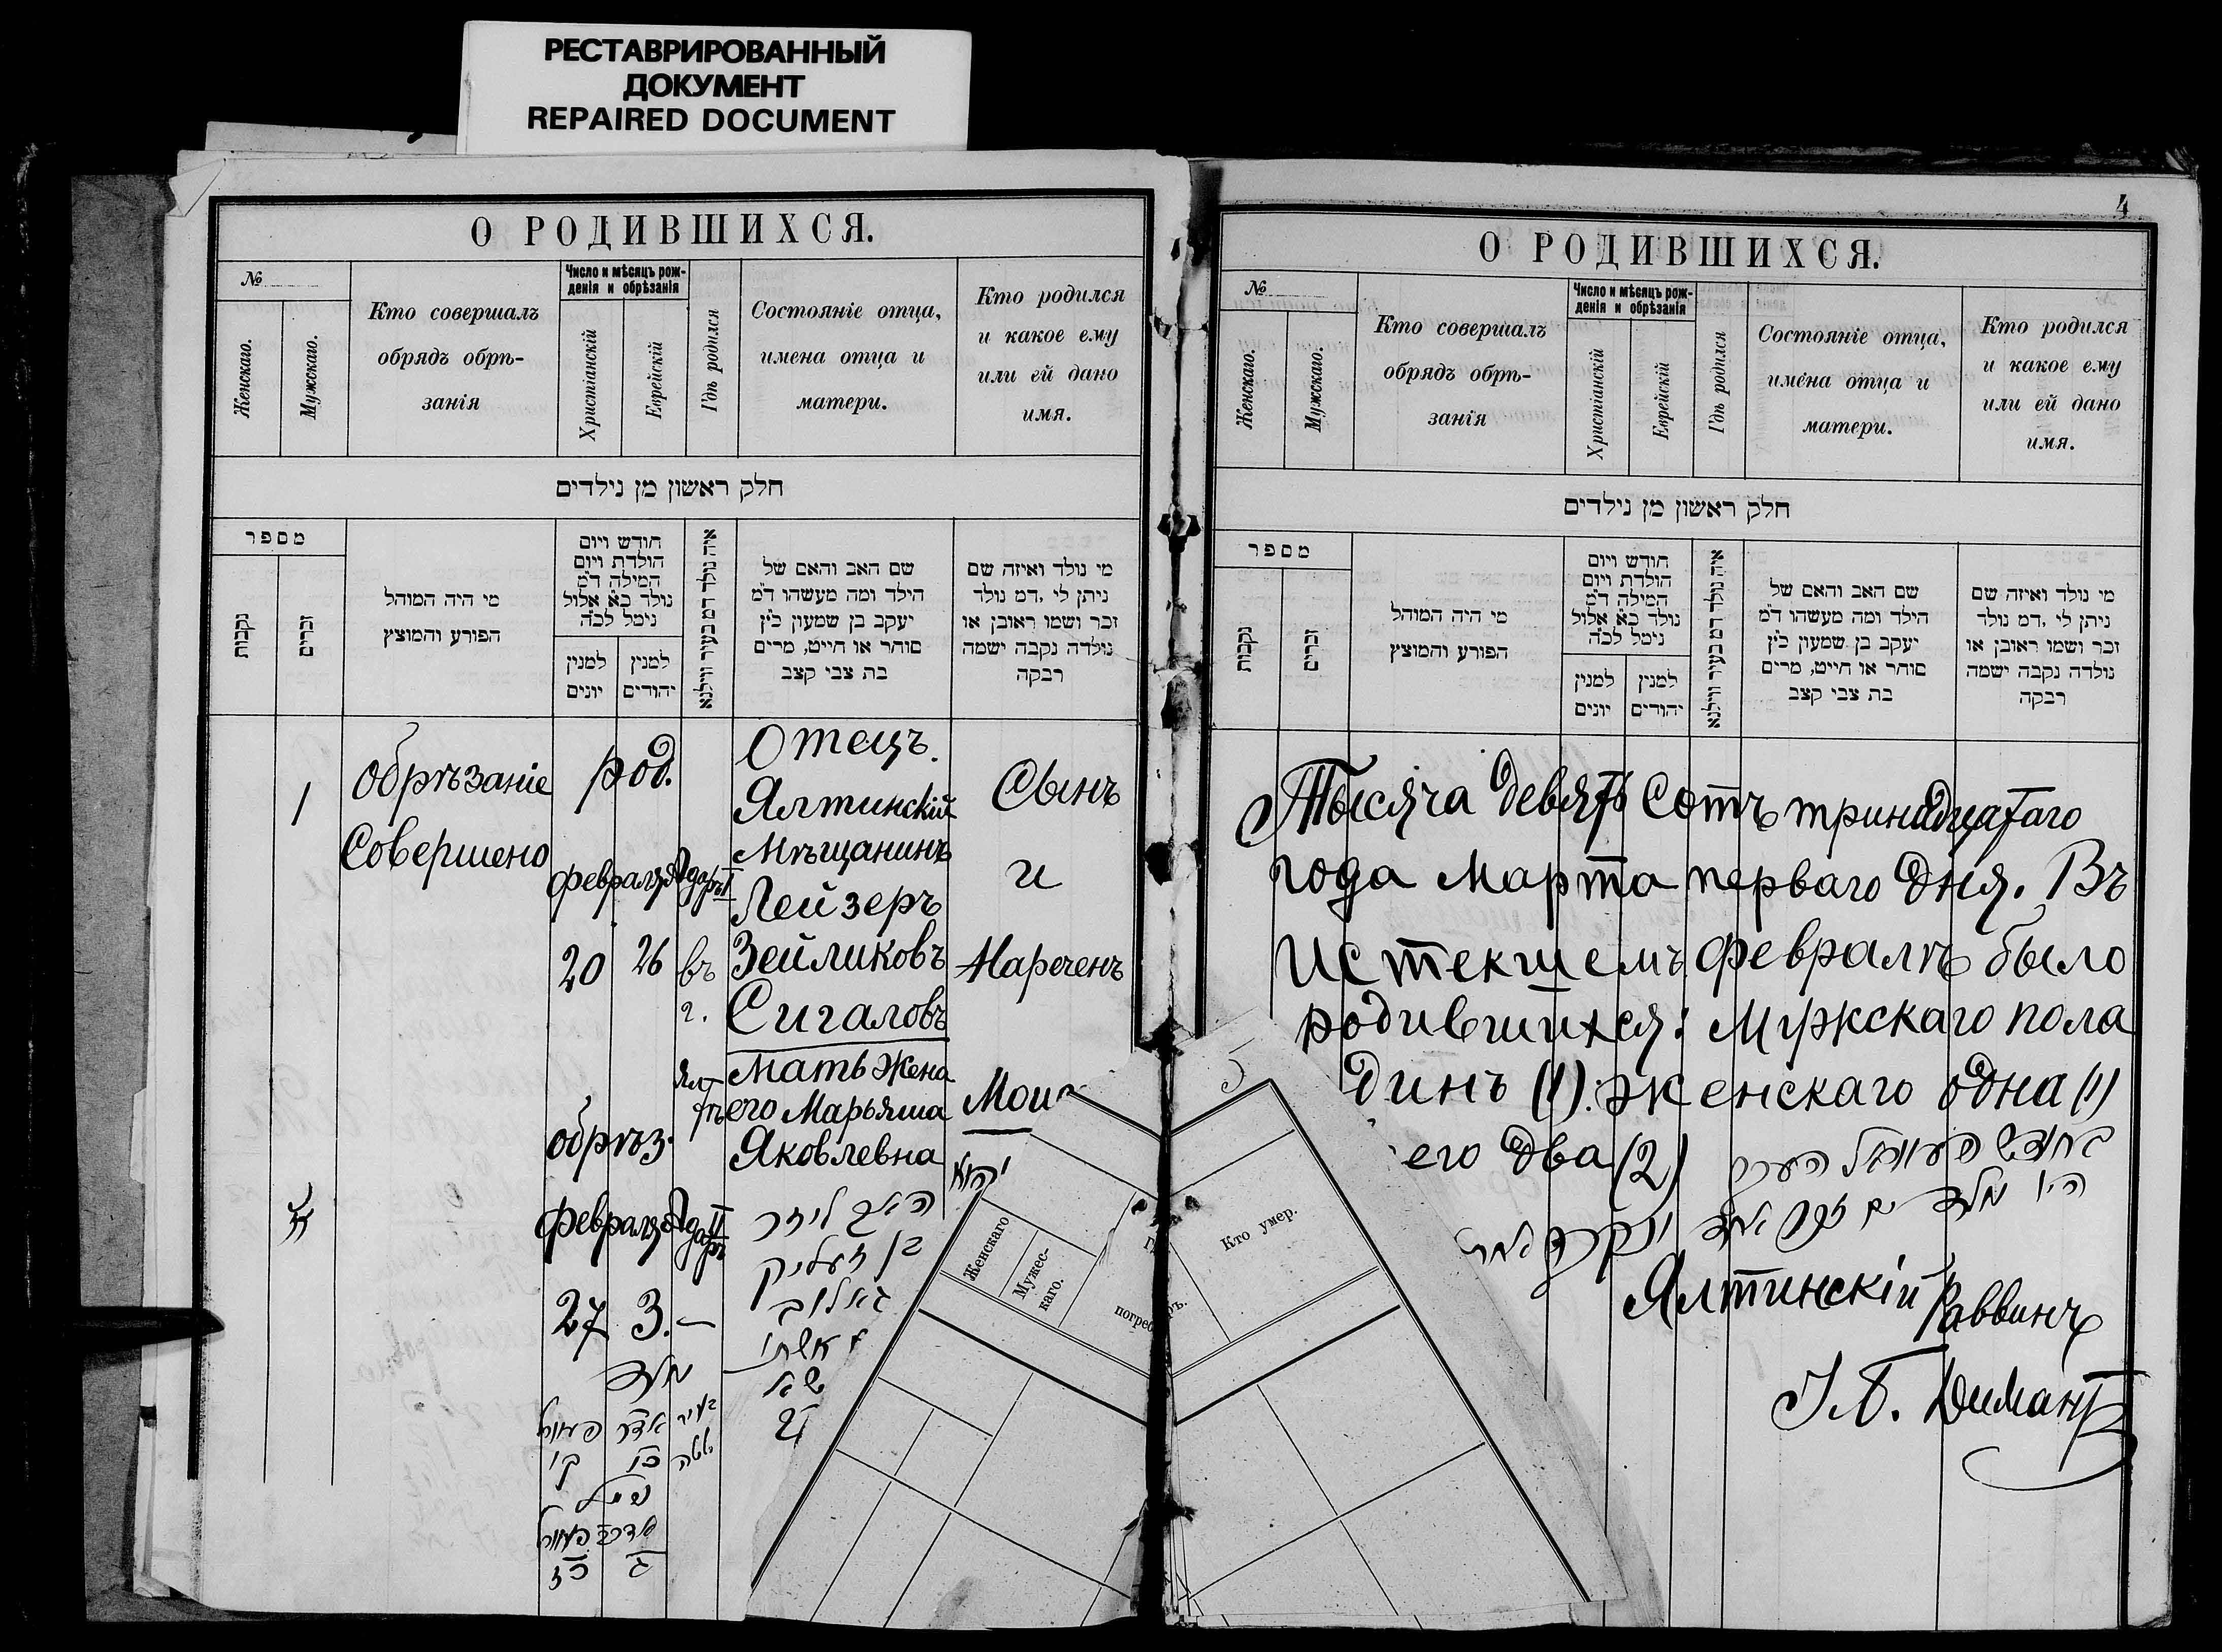 РЕСТАВРИРОВАННЫЙ
ДОКУМЕНТ
REPAIRED DOCUMENT
О РОДИВШИХСЯ.
№
Женскаго.
Мужскаго.
Кто совершалъ
обрядъ обрѣ-
занія
Число и мѣсяцъ рож-
денія и обрѣзанія
Христіанскій
Еврейскій
Гдѣ родился
Состояніе отца,
имена отца и
матери.
Кто родился
и какое ему
или ей дано
имя.
חלק ראשון מן נילדים
מספר
נקבות
זכרים
מי היה המוהל
הפורע והמוצץ
חודש ויום
הולדת ויום
המילה ד״מ
נולד כ״א אלול
נימל לכ״ה
למנין
יונים
למנין
יהודים
איה נולד דמ בעיר ווילנא
שם האב והאם של
הילד ומה מעשהו ד״מ
יעקב בן שמעון כ״ץ
סוחר או חייט, מרים
בת צבי קצב
מי נולד ואיזה שם
ניתן לי ,דמ נולד
זכר ושמו ראובן או
נולדה נקבה ישמה
רבקה
1
Обрѣзаніе
Совершено
род.
февраля
Адаръ I
20
26
въ
г.
Ял
тѣ
Отецъ.
Ялтинскій
Мѣщанинъ
Лейзеръ
Зейликовъ
Сигаловъ
Мать жена
его Марьяша
Яковлевна
Сынъ
и
Нареченъ
Мои
обрѣз.
февраля
Адаръ II
27
3.
האב ליזר
בן זעליק
Женскаго
Мужес-
каго.
погреб
4
О РОДИВШИХСЯ.
№
Женскаго.
Мужскаго.
Кто совершалъ
обрядъ обрѣ-
занія
Число и мѣсяцъ рож-
денія и обрѣзанія
Христіанскій
Еврейскій
Гдѣ родился
Состояніе отца,
имена отца и
матери.
Кто родился
и какое ему
или ей дано
имя.
חלק ראשון מן נילדים
מספר
נקבות
זכרים
מי היה המוהל
הפורע והמוצץ
חודש ויום
הולדת ויום
המילה ד״מ
נולד כ״א אלול
נימל לכ״ה
למנין
יונים
למנין
יהודים
איה נולד דמ בעיר ווילנא
שם האב והאם של
הילד ומה מעשהו ד״מ
יעקב בן שמעון כ״ץ
סוחר או חייט, מרים
בת צבי קצב
מי נולד ואיזה שם
ניתן לי ,דמ נולד
זכר ושמו ראובן או
נולדה נקבה ישמה
רבקה
Тысяча девятьсотъ тринадцатаго
года Марта перваго дня. Въ
истекшемъ февралѣ было
родившихся: Мужскаго пола
динъ (1): женскаго одна (1)
его два (2)
Ялтинскій Раввинъ
I.Б. Димантъ
5
Кто умер.